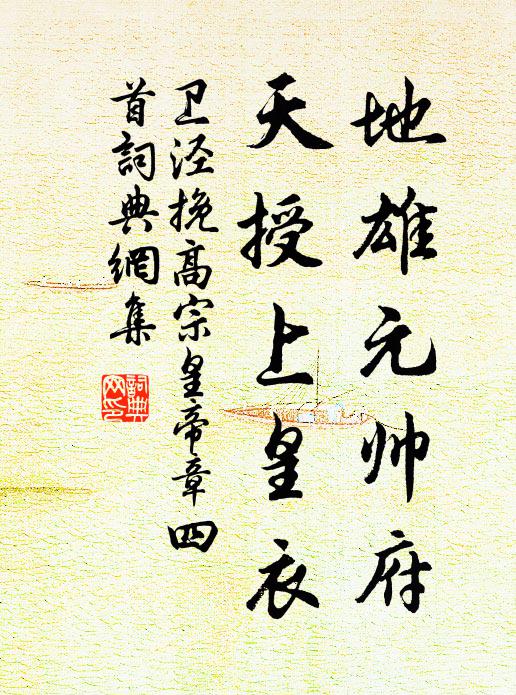 地雄元帅府
天授上皇衣
卫泾挽高宗皇帝章四
首詞典網集
詞典
网印